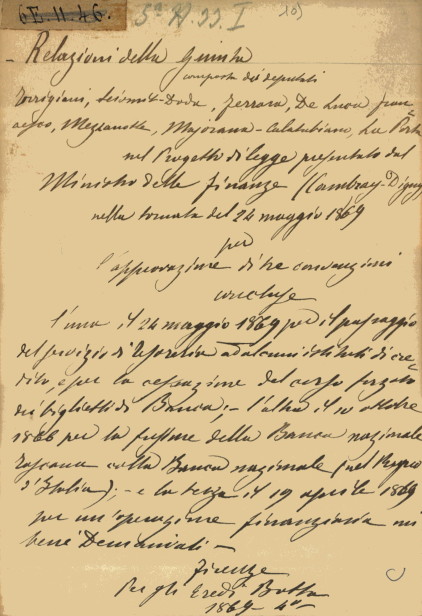 6E.11.46.
5ª H. 33. I
- Relazioni della Giunta
composta dei deputati
Torrigiani, Seismit-Doda, Ferrara, De Luca Fran=
cesco, Messanotte, Majorana-Calatabiano, La Porta
nel Progetto di legge presentato dal
Ministro delle finanze (Cambray-Digny)
nella tornata del 24 maggio 1869
per
l'approvazione di tre convenzioni
concluse
l'una il 24 maggio 1869 per il passaggio
del servizio di Tesoreria ad alcuni istituti di cre=
dito, e per la cessazione del corso forzato
dei biglietti di Banca; - l'altra il 10 ottobre
1866 per la fusione della Banca nazionale
Toscana colla Banca nazionale (nel Regno
d'Italia); - e la terza il 19 aprile 1869
per un'operazione finanziaria sui
beni Demaniali -
Firenze
Per gli Eredi Botta
1869 - 4º -